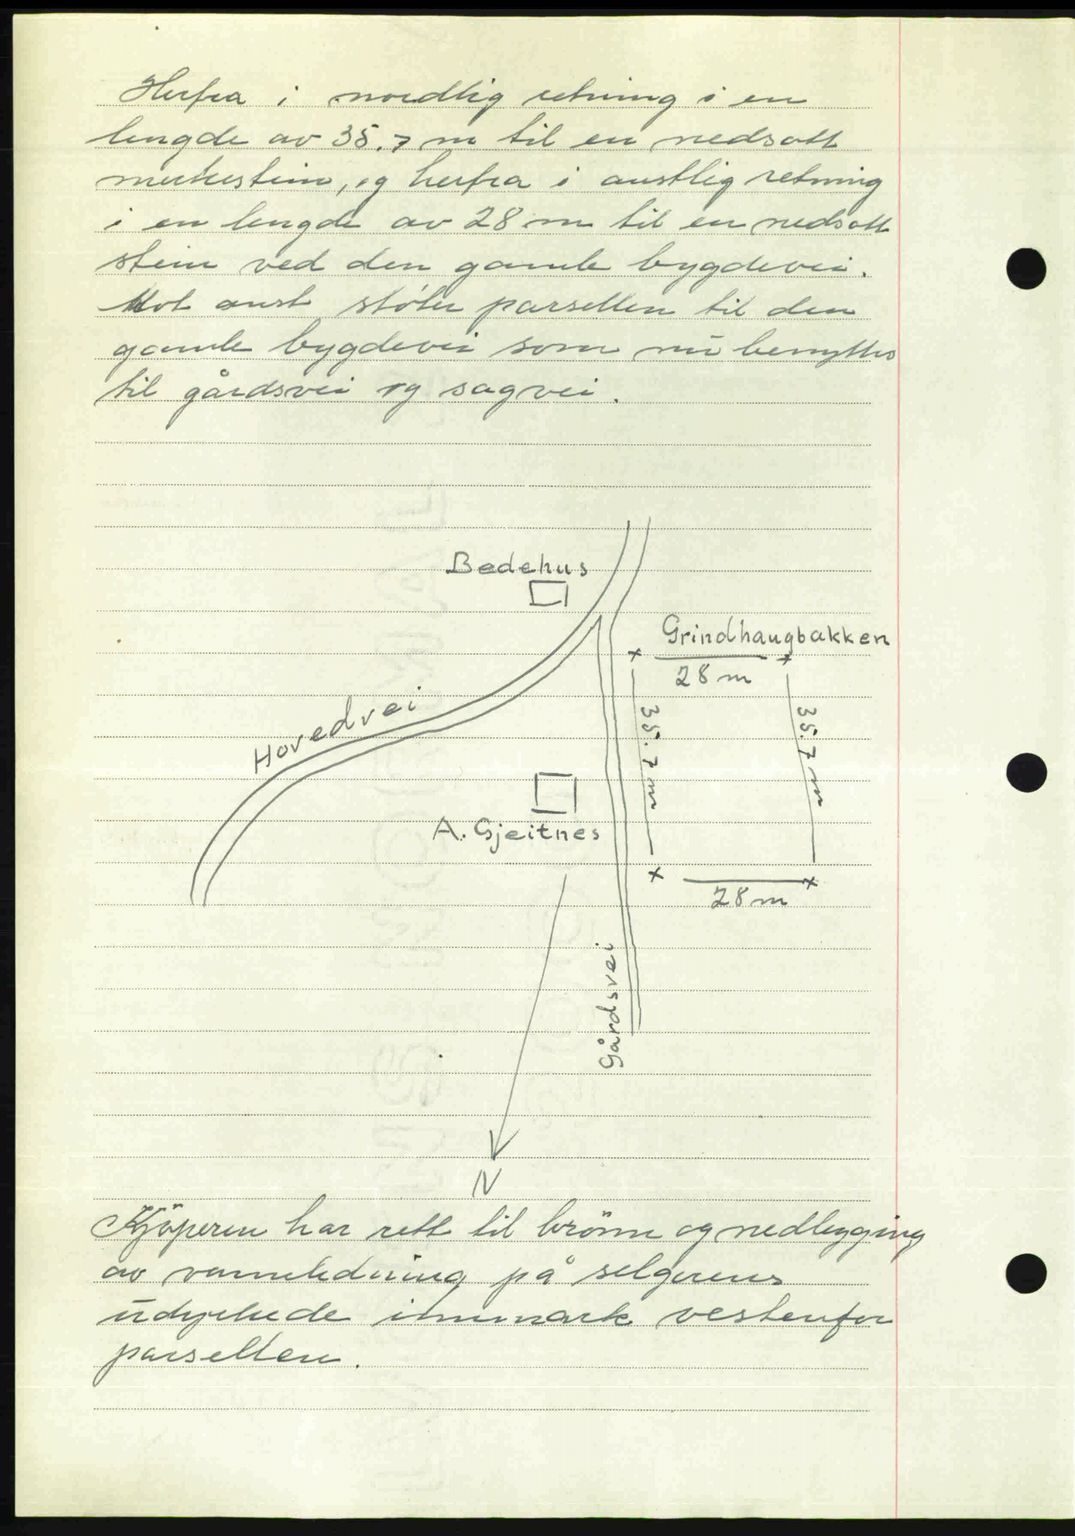 Herfra i nordlig retning i en
lengde av 35.7 m til en nedsatt
merkestein, og herfra i austlig retning
i en lengde av 28 m til en nedsatt
stein ved den gamle bygdevei.
Mot aust støter parsellen til den
gamle bygdevei som nu benyttes
til gårdsvei og sagvei.
Bedehus
Grindhaugbakken
28 m
Hovedvei
35.7 m
35.7 m
A. Gjeitnes
28 m
Gårdsvei
N
Kjöperen har rett til brönn og nedlegging
av vannledning på selgerens
udyrkede innmark vestenfor
parsellen.